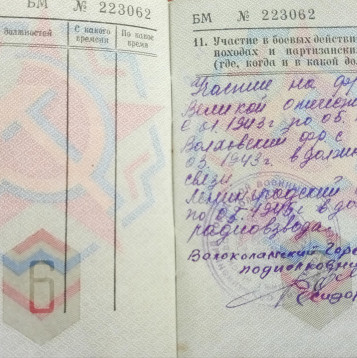 БМ № 223062
должностей
С какого времени
По какое время
6
БМ № 223062
11. Участие в боевых действи
походах и партизански
(где, когда и в какой дол
Участие на фр
Великой отечес
с 01.1943г по 05.
Волховский фр с
03.1943г. в долж
связи
Ленинградский
по 02.1945г в до
радиовзвода
Волоколамский Горв
подполковни